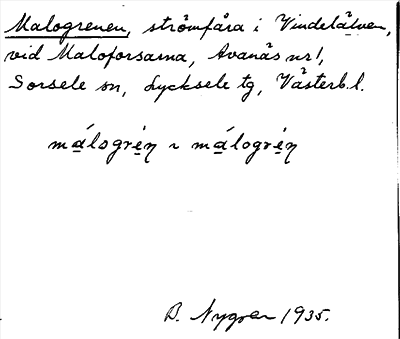 Malogrenen, strömfåra i Vindelälven,
vid Maloforsarna, Avanäs nr 1,
Sorsele sn, Lycksele tg, Västerb. l.
málogrén ~ málogrén
B. Nygren 1935.